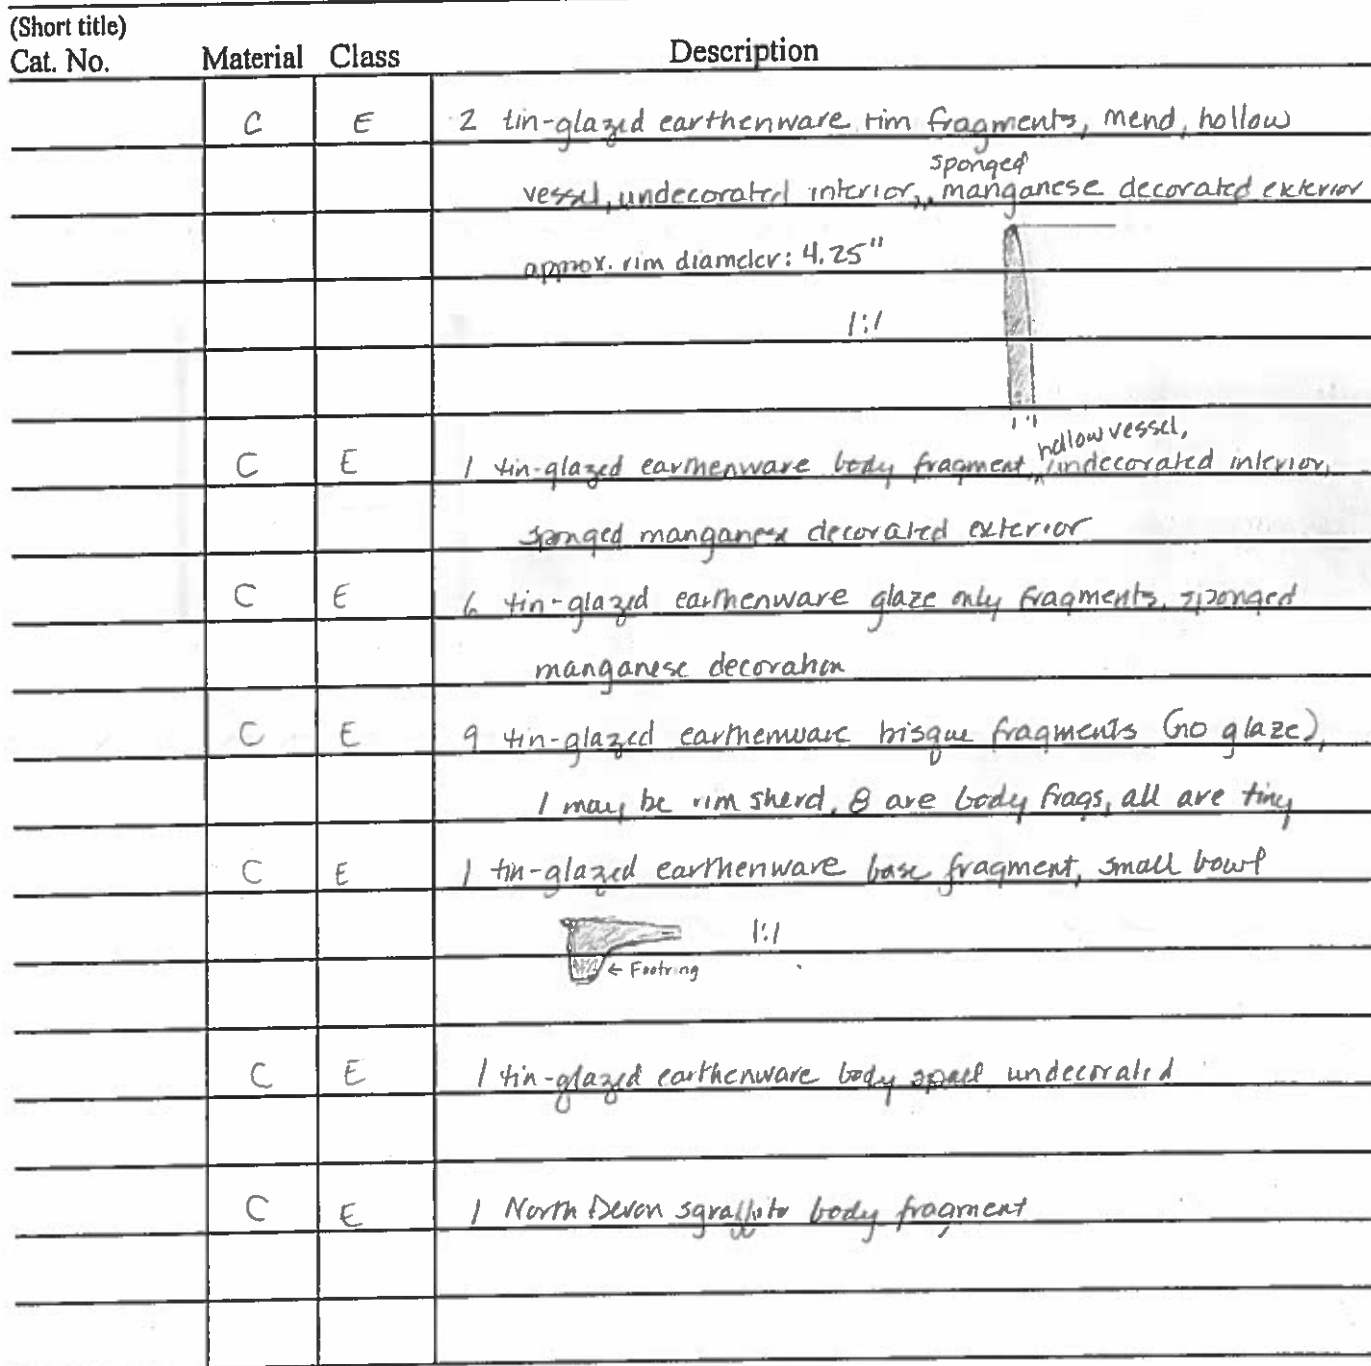 (Short title)
Cat. No. Material Class Description
C E 2 tin-glazed earthenware rim fragments, mend, hollow
vessel, undecorated interior, sponged manganese decorated exterior
approx. rim diameter: 4.25"
1:1
C E 1 tin-glazed earthenware body fragment, hollow vessel, undecorated interior,
sponged manganese decorated exterior
C E 6 tin-glazed earthenware glaze only fragments, sponged
manganese decoration
C E 9 tin-glazed earthenware bisque fragments (no glaze),
1 may be rim sherd, 8 are body frags, all are tiny
C E 1 tin-glazed earthenware base fragment, small bowl
1:1
← Footring
C E 1 tin-glazed earthenware body spall undecorated
C E 1 North Devon sgraffito body fragment